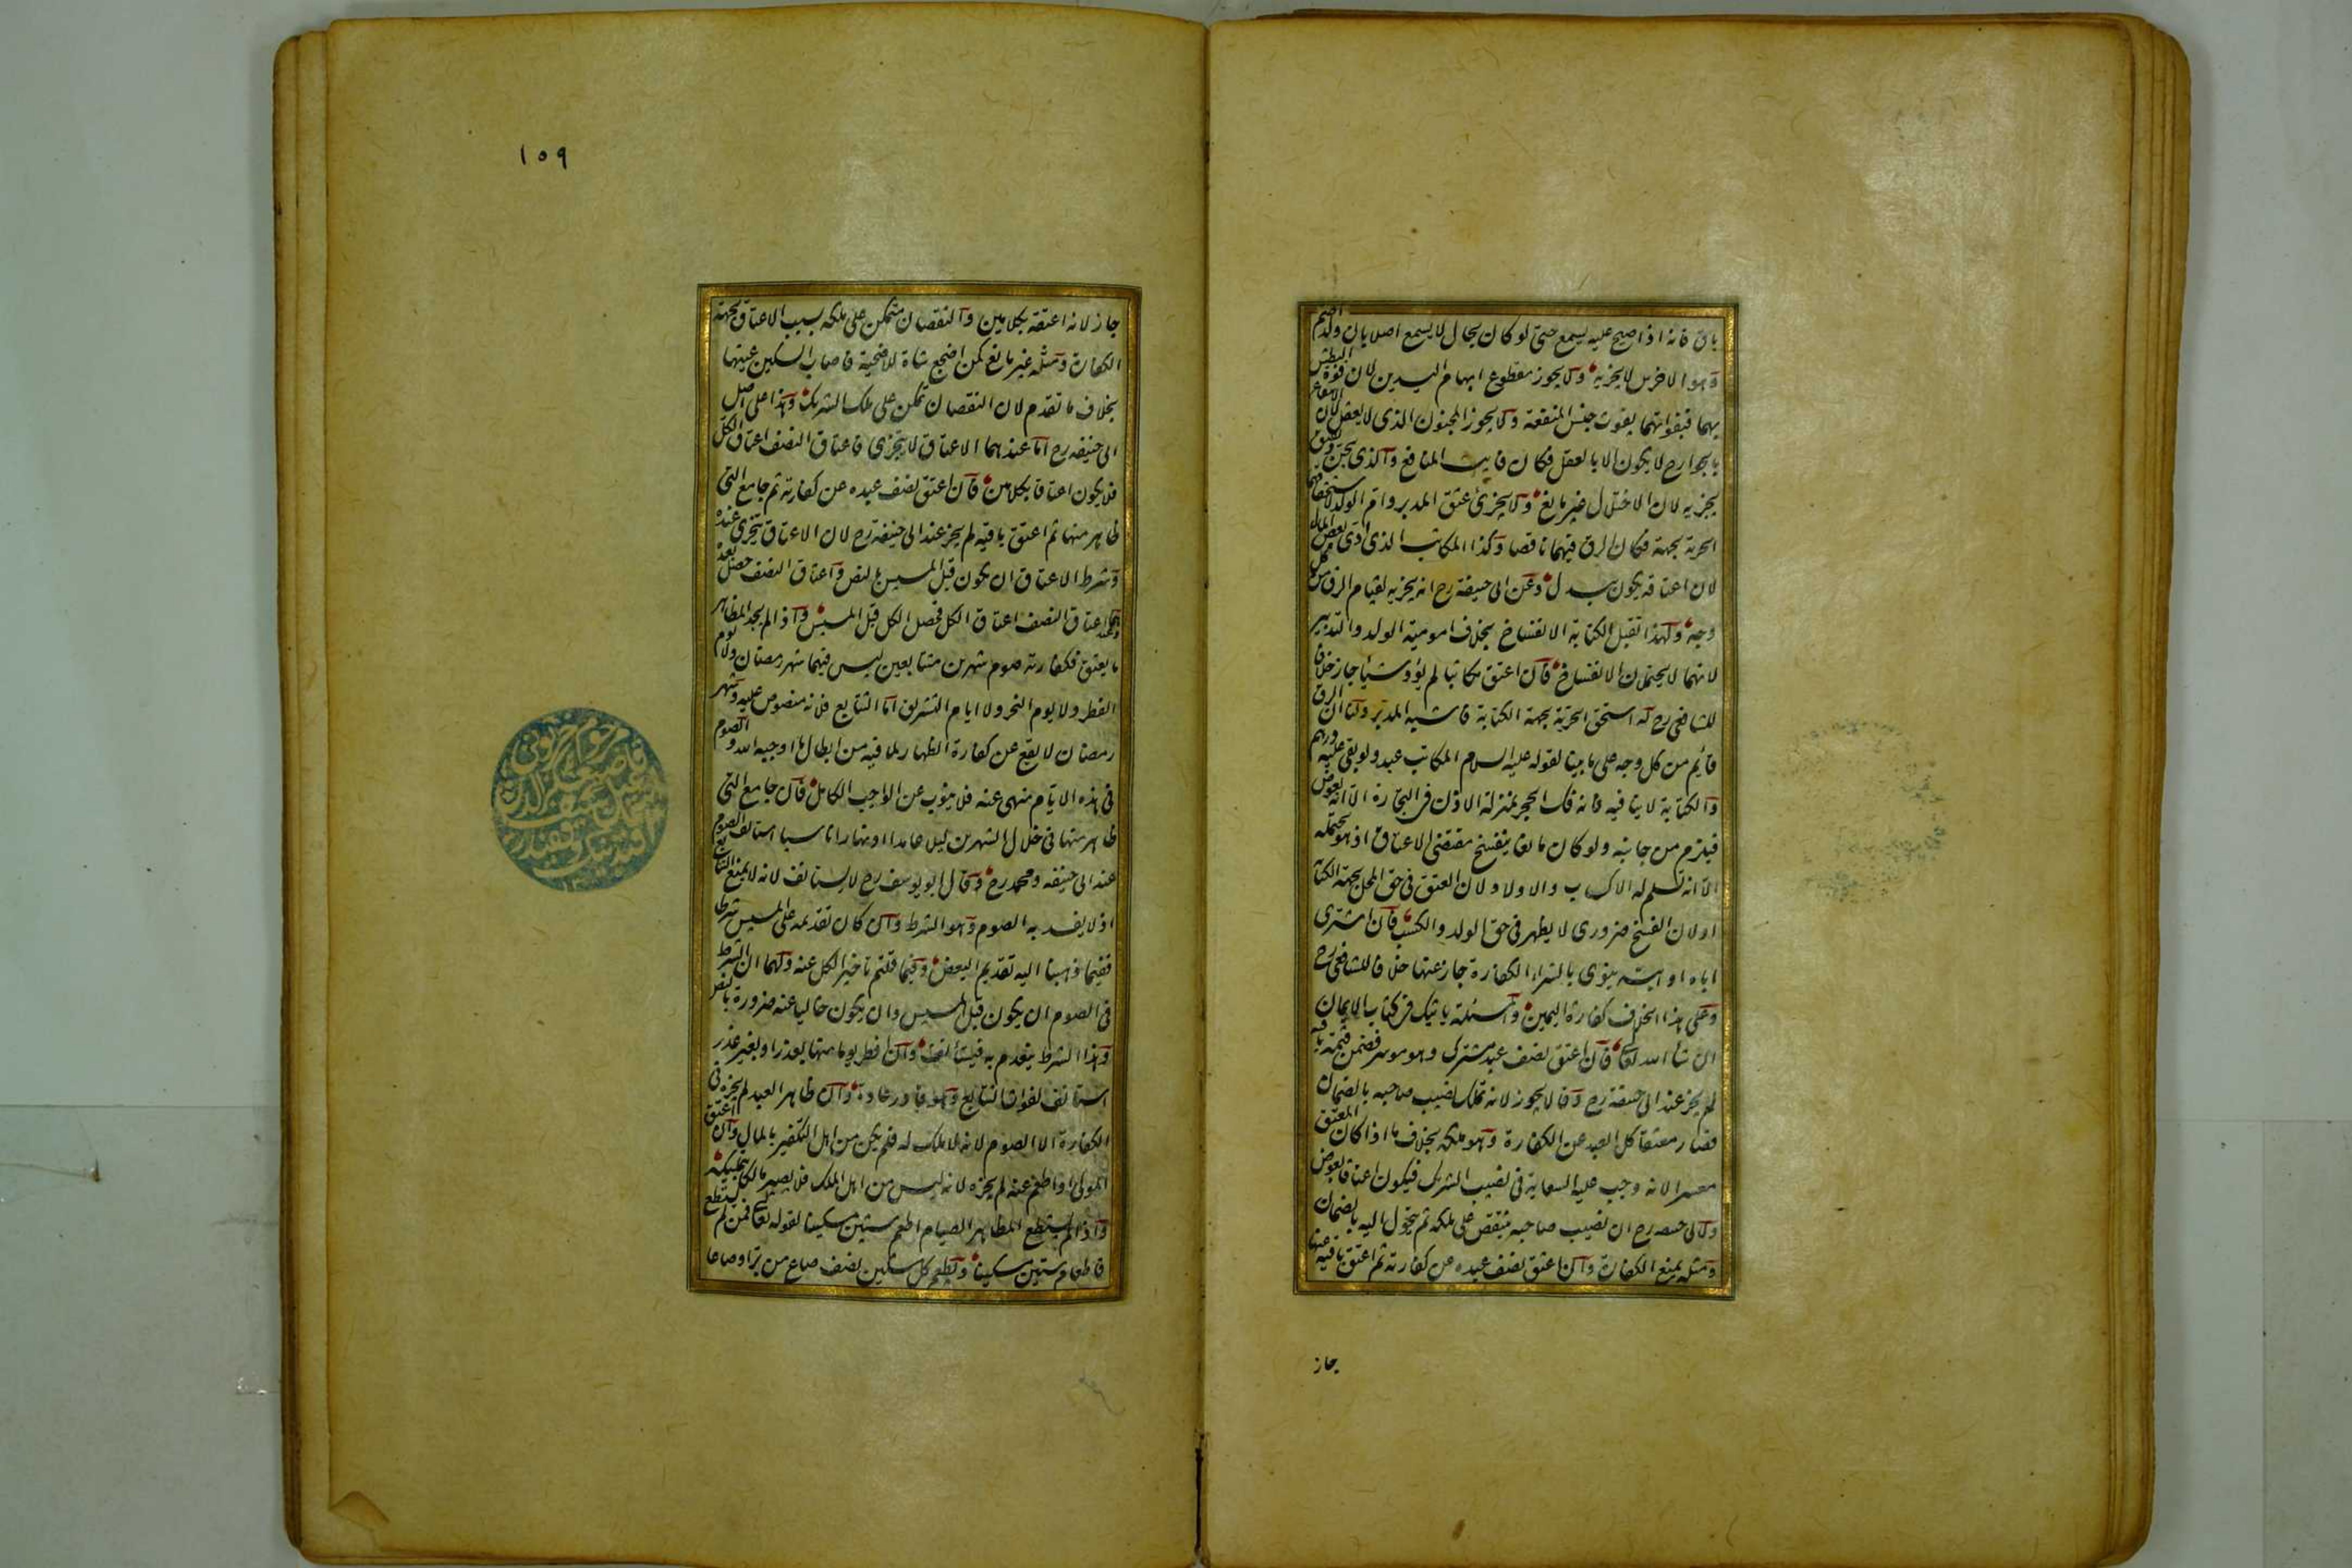 باق فانه اذا صيح عليه يسمع حتى لو كان بحال لا يسمع اصلا بان ولد اصم
وهو الاخرس لا يجزيه ولا يجوز مقطوع ابهام اليدين لان قوة البطش
بهما فبفواتهما يفوت جنس المنفعة ولا يجوز المجنون الذى لا يعقل لان الانتفاع
بالجوارح لا يكون الا بالعقل فكان فايت المنافع والذى يجن ويفيق
يجزيه لان الاختلال غير مانع ولا يجزئ عتق المدبر وام الولد لاستحقاقهما
الحرية بجهة فكان الرق فيهما ناقصا وكذا المكاتب الذى ادى بعض المال
لان اعتاقه يكون ببدل وعن ابى حنيفة رح انه يجزيه لقيام الرق من كل
وجه ولهذا تقبل الكتابة الانفساخ بخلاف امومية الولد والتدبير
لانهما لا يحتملان الانفساخ فان اعتق مكاتبا لم يؤد شيأ جاز خلافا
للشافعى رح له استحق الحرية بجهة الكتابة فاشبه المدبر ولنا ان الرق
قائم من كل وجه على ما بينا لقوله عليه السلام المكاتب عبد ولو بقى عليه درهم
والكتابة لا ينافيه فانه فك الحجر بمنزلة الاذن فى التجارة الا انه بعوض
فيلزم من جانبه ولو كان مانعا ينفسخ مقتضى الاعتاق اذ هو يحتمله
الا انه تسلم له الاكساب والاولاد لان العتق فى حق المحل بجهة الكتابة
او لان الفسخ ضرورى لا يظهر فى حق الولد والكسب فان اشترى
اباه او ابنه ينوى بالشراء الكفارة جاز عنها خلافا للشافعى رح
وعلى هذا الخلاف كفارة اليمين والمسئلة ياتيك فى كتاب الايمان
ان شأ الله تعالى فان اعتق نصف عبد مشترك وهو موسر فضمن قيمة باقيه
لم يجز عند ابى حنيفة رح وقالا يجوز لانه تملك نصيب صاحبه بالضمان
فصار معتقا كل العبد عن الكفارة وهو ملكه بخلاف ما اذا كان المعتق
معسرا لانه وجب عليه السعاية فى نصيب الشريك فيكون اعتاقا بعوض
ولابى حنيفة رح ان نصيب صاحبه ينتقص على ملكه ثم يتحول اليه بالضمان
ومثله يمنع الكفارة وان اعتق نصف عبده عن كفارته ثم اعتق باقيه عنها
جاز
١٥٩
جاز لانه اعتقه بكلامين والنقصان متمكن على ملكه بسبب الاعتاق بجهة
الكفارة ومثله غير مانع كمن اضجع شاة للاضحية فاصاب السكين عينها
بخلاف ما تقدم لان النقصان تمكن على ملك الشريك وهذا على اصل
ابى حنيفه رح اما عندهما الاعتاق لا يتجزى فاعتاق النصف اعتاق الكل
فلا يكون اعتاقا بكلامين فان اعتق نصف عبده عن كفارته ثم جامع التى
ظاهر منها ثم اعتق باقيه لم يجز عند ابى حنيفة رح لان الاعتاق يتجزى عنده
وشرط الاعتاق ان يكون قبل المسيس بالنص واعتاق النصف حصل بعده
وعندهما اعتاق النصف اعتاق الكل فحصل الكل قبل المسيس واذا لم يجد المظاهر
ما يعتق فكفارته صوم شهرين متتابعين ليس فيهما شهر رمضان ولا يوم
الفطر ولا يوم النحر ولا ايام التشريق اما التتابع فلانه منصوص عليه وشهر
رمضان لا يقع عن كفارة الظهار لما فيه من ابطال ما اوجبه الله والصوم
فى هذه الايام منهى عنه فلا ينوب عن الواجب الكامل فان جامع التى
ظاهر منها فى خلال الشهرين ليلا عامدا او نهارا ناسيا استانف الصوم
عند ابى حنيفه ومحمد رح وقال ابو يوسف رح لا يستانف لانه لا يمنع التتابع
اذ لا يفسد به الصوم وهو الشرط وان كان تقديمه على المسيس شرطا
ففيما ذهبنا اليه تقديم البعض وفيما قلتم تاخير الكل عنه ولهما ان الشرط
فى الصوم ان يكون قبل المسيس وان يكون خاليا عنه ضرورة بالنص
وهذا الشرط ينعدم به فيستأنف وان افطر يوما منها بعذر او بغير عذر
استانف لفوات التتابع وهو قادر عادة وان ظاهر العبد لم يجزه فى
الكفارة الا الصوم لانه لا ملك له فلم يكن من اهل التكفير بالمال وان اعتق
المولى او اطعم عنه لم يجزه لانه ليس من اهل الملك فلا يصير مالكا بتمليكه
واذا لم يستطع المظاهر الصيام اطعم ستين مسكينا لقوله تعالى فمن لم يستطع
فاطعام ستين مسكينا ويطعم كل مسكين نصف صاع من بر او صاعا